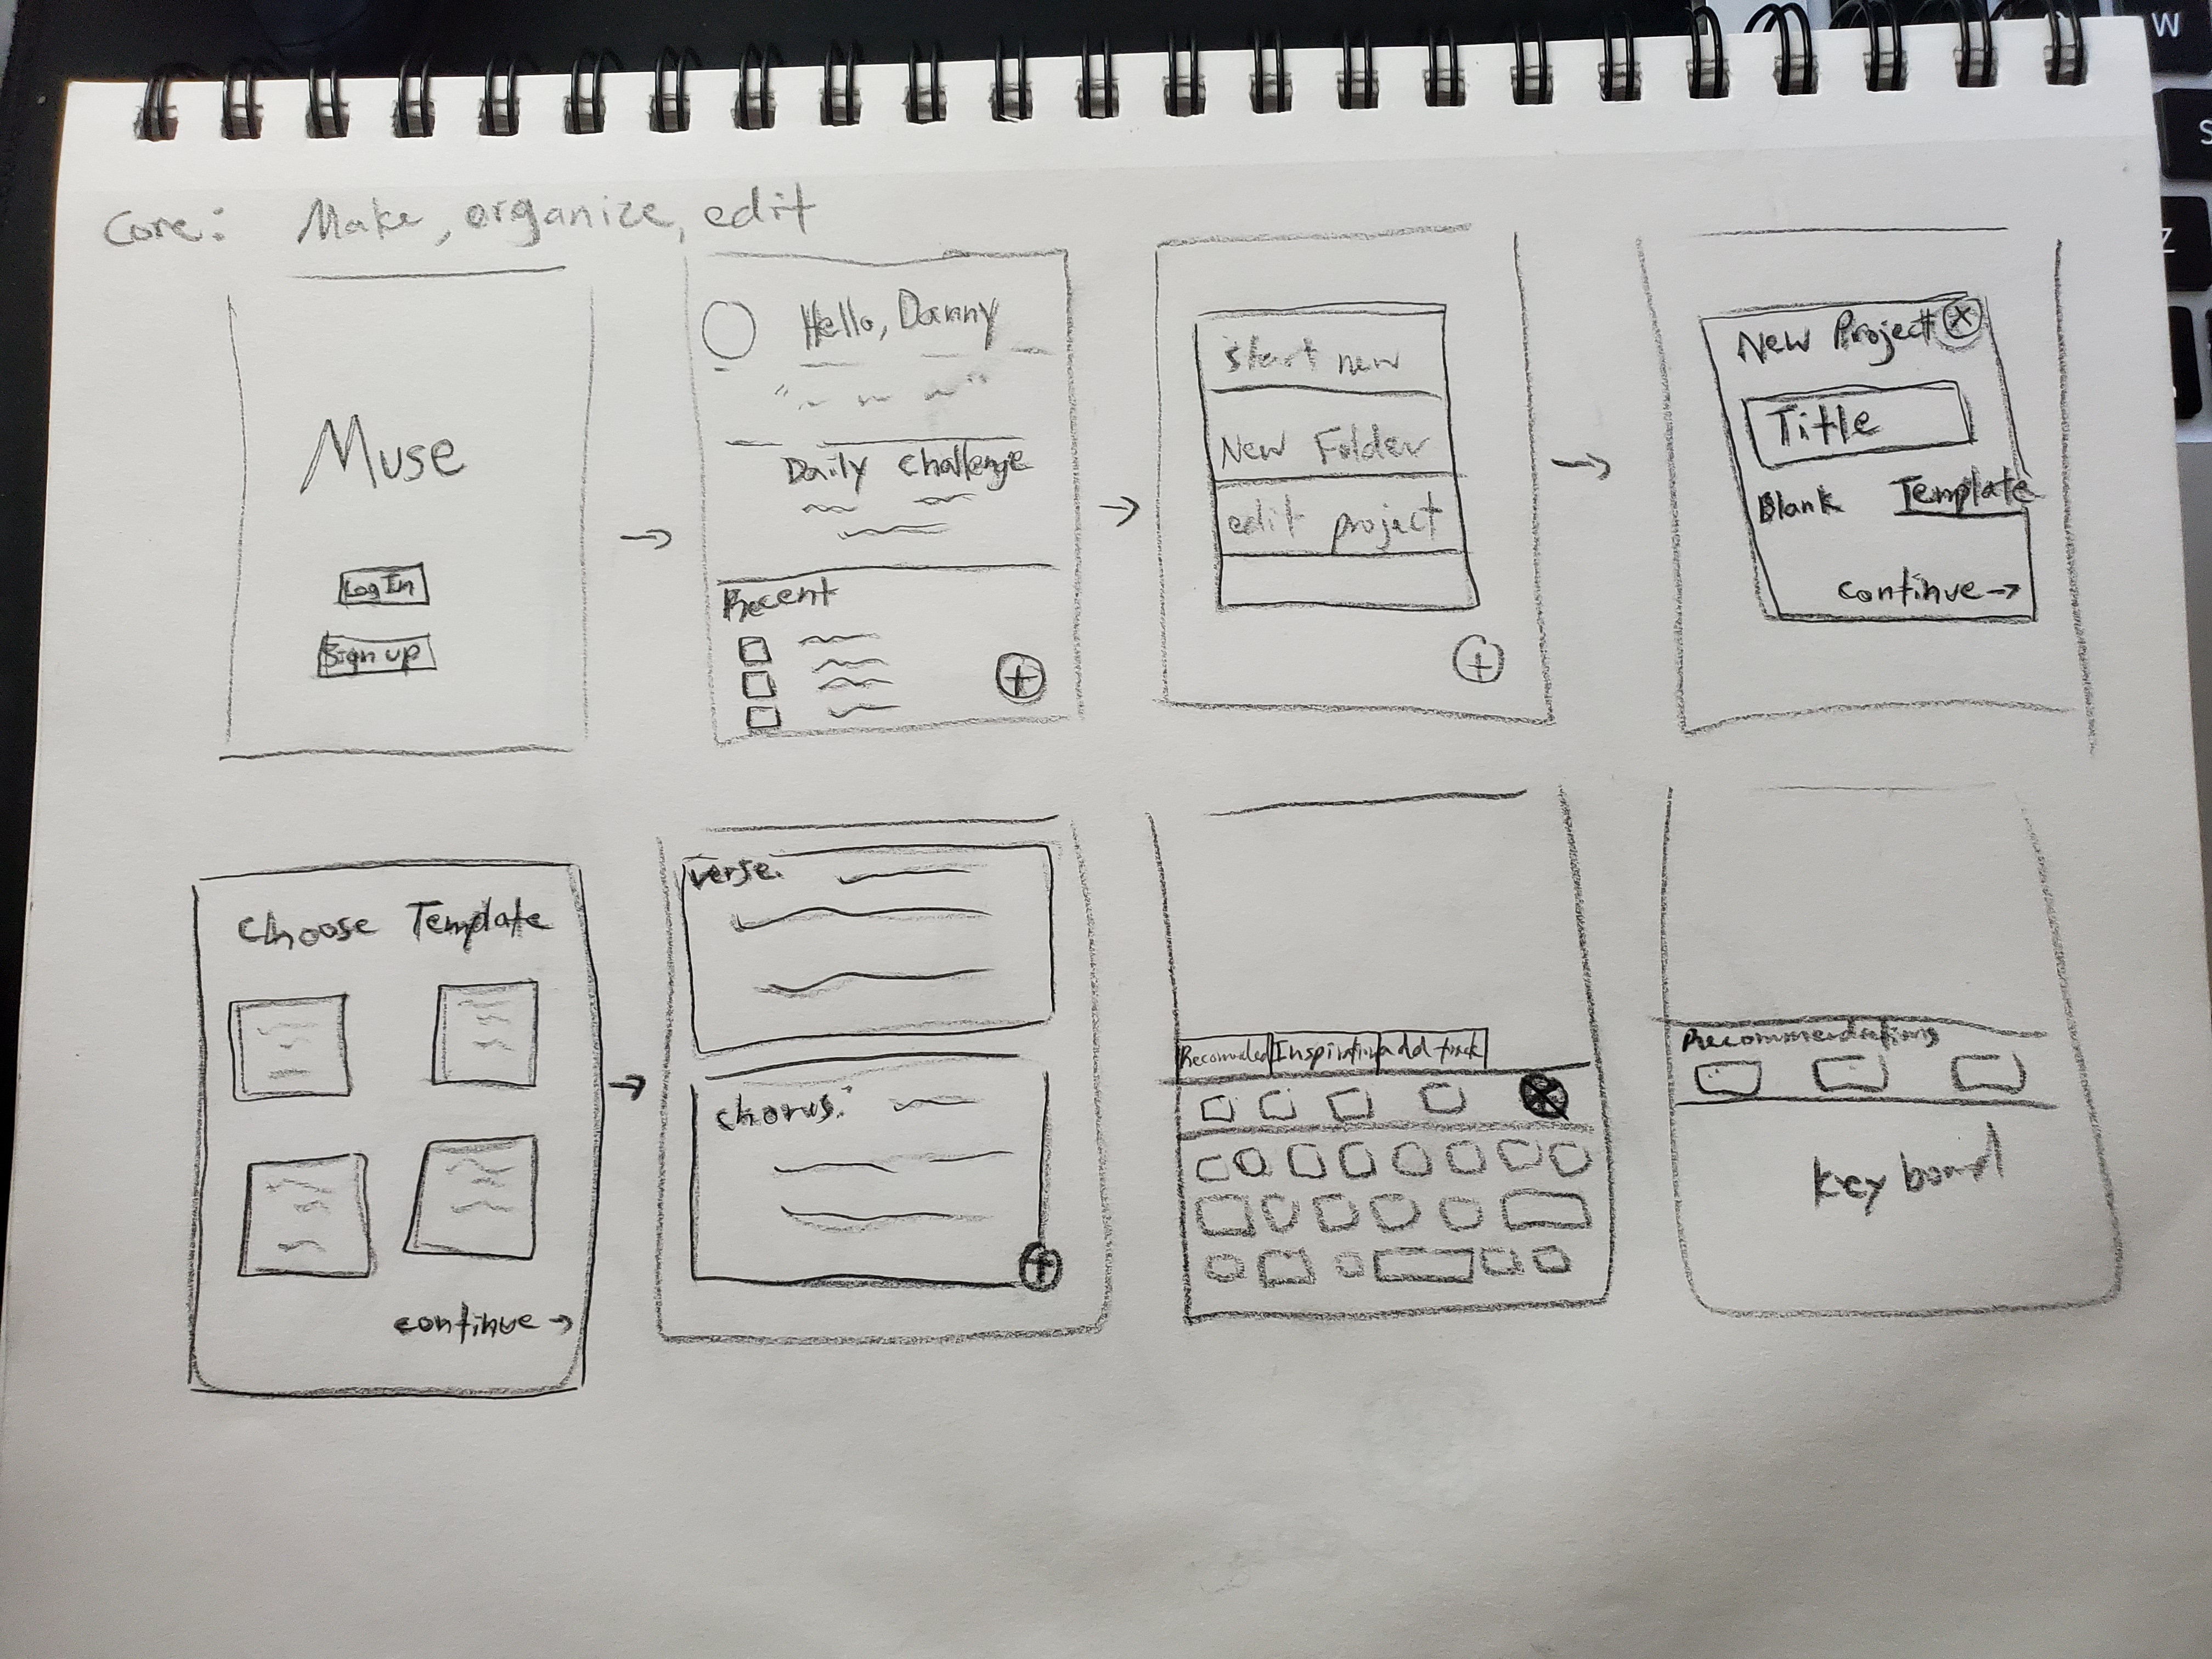 Core: Make, organize, edit
Muse
Log In
Sign up
Hello, Danny
Daily Challenge
Recent
Start new
New Folder
edit project
New Project
Title
Blank Template
continue →
Choose Template
continue →
Verse:
Chorus:
Inspiration add track
Recommendations
Keyboard
W
S
Z